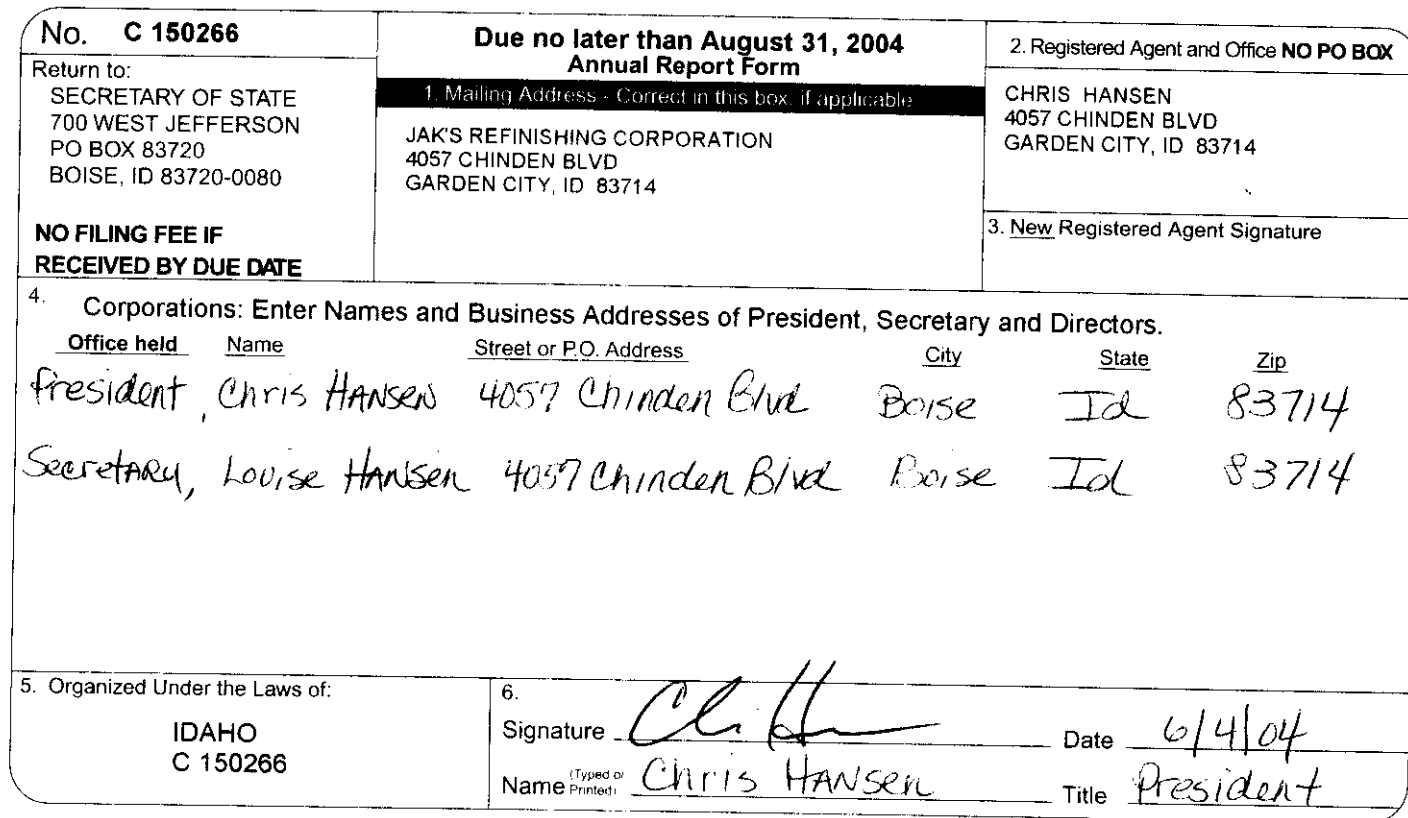 No. C 150266
Return to:
SECRETARY OF STATE
700 WEST JEFFERSON
PO BOX 83720
BOISE, ID 83720-0080
NO FILING FEE IF
RECEIVED BY DUE DATE
Due no later than August 31, 2004
Annual Report Form
1. Mailing Address - Correct in this box, if applicable
JAK'S REFINISHING CORPORATION
4057 CHINDEN BLVD
GARDEN CITY, ID 83714
2. Registered Agent and Office NO PO BOX
CHRIS HANSEN
4057 CHINDEN BLVD
GARDEN CITY, ID 83714
3. New Registered Agent Signature
4. Corporations: Enter Names and Business Addresses of President, Secretary and Directors.
Office held Name Street or P.O. Address City State Zip
President, Chris HANSEN 4057 Chinden Blvd Boise Id 83714
SecretARy, Louise HANSEN 4057 Chinden Blvd Boise Id 83714
5. Organized Under the Laws of:
IDAHO
C 150266
6.
Signature Date 6/4/04
Name (Typed or Printed) Chris HANSEN Title President